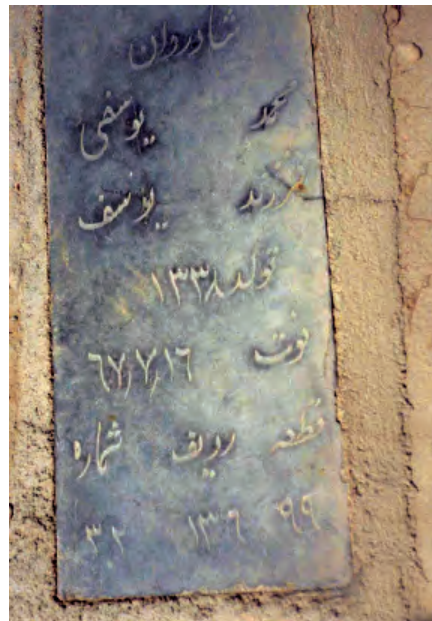 شادروان
محمد یوسفی
فرزند یوسف
تولد ۱۳۳۸
فوت ٦٧٫٧٫١٦
قطعه ردیف شماره
۹۹ ۱۳۹ ۳۲